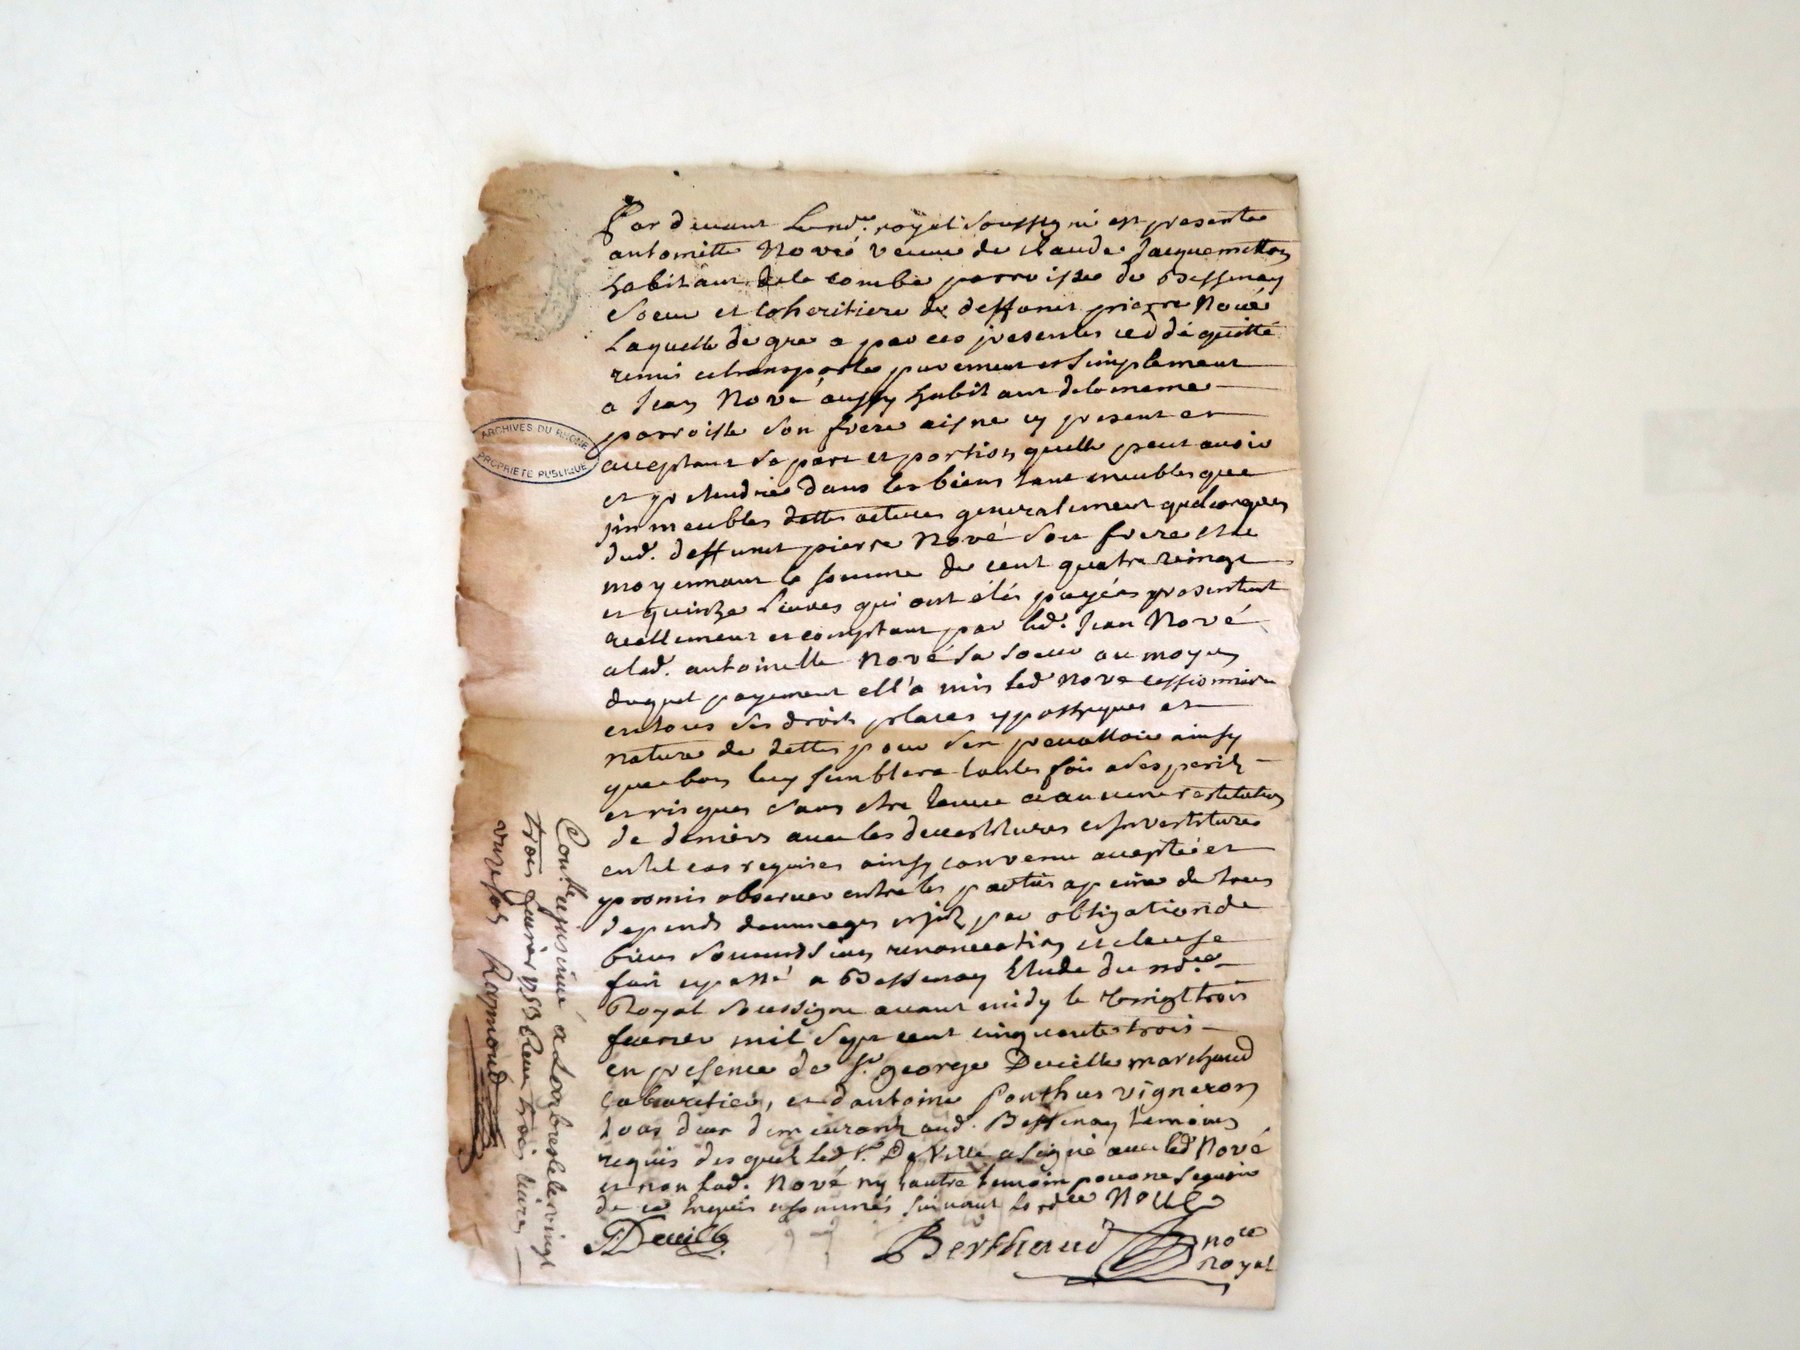 Par devant Le nd.re royal soussigné est presente
antoinette Nové veuve de claude Jacquemetton
habitant de la combe parroisse de Bessenay
soeur et coheritiere de deffunt pierre Nové
Laquelle de gre a par ces presentes ceddé quitté
remis et transporte purement et simplement
a Jean Nové aussy habitant de la meme
parroisse son frere aisne cy present et
aceptant sa part et portion quelle peut avoir
et pretendre dans les biens tant meubles que
jmmeubles dettes actives generalement quelconques
dud. deffunt pierre Nové son frere et ce
moyennant la somme de cent quatre vingt
et quinze livres qui ont étés payées presentement
reellement et comptant par led. Jean Nové
a lad. antoinette Nové sa soeur au moyen
duquel payement ell'a mis led Nové cessionnaire
en tous ses droits places ypotheques et
nature de dettes pour s'en prevalloir ainsy
que bon luy semblera toutes fois a ses perils
et risques sans etre tenue a aucune restitution
de deniers avec les devestitures et investitures
en tel cas requises ainsy convenu accepté et
promis observer entre les parties a peine de tous
depends dommages par obligation de
biens soumissions renonciation et clause
fait et passé a Bessenay Etude du nd.re
Royal soussigne avant midy le vingt trois
fevrier mil sept cent cinquante trois
en presence de Sr. george Deville marchand
cabaretier, et d'antoine Ponthus vigneron
tous deux demeurants aud. Bessenay temoins
requis desquels led Sr. DeVille a signé avec led Nové
et non lad. Nové ny l'autre temoin pour ne scavoir
de ce enquis et sommés suivant lord.ce Nové
GDeville
Berthaud no.re
Royal
Cont.lé et insinué a L'arbresle le vingt
trois fevrier 1753 Reçu trois livres
onze sols Raymond
ARCHIVES DU RHONE
PROPRIETE PUBLIQUE